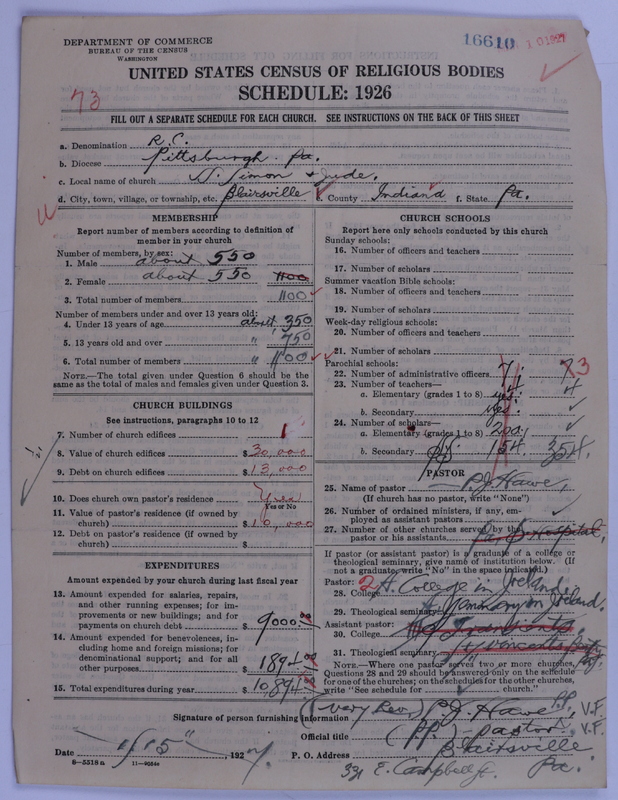 DEPARTMENT OF COMMERCE
BUREAU OF THE CENSUS
WASHINGTON
16610
UNITED STATES CENSUS OF RELIGIOUS BODIES
SCHEDULE: 1926
73
FILL OUT A SEPARATE SCHEDULE FOR EACH CHURCH. SEE INSTRUCTIONS ON THE BACK OF THIS SHEET
a. Denomination R.C.
b. Diocese Pittsburgh. Pa.
c. Local name of church St. Simon & Jude.
d. City, town, village, or township, etc. Blairsville e. County Indiana f. State Pa.
MEMBERSHIP
Report number of members according to definition of
member in your church
Number of members, by sex:
1. Male about 550
2. Female about 550 1100
3. Total number of members 1100
Number of members under and over 13 years old:
4. Under 13 years of age about 350
5. 13 years old and over " 750
6. Total number of members " 1100
NOTE.—The total given under Question 6 should be the
same as the total of males and females given under Question 3.
CHURCH BUILDINGS
See instructions, paragraphs 10 to 12
7. Number of church edifices 1
8. Value of church edifices $ 30,000
9. Debt on church edifices $ 13,000
10. Does church own pastor's residence Yes
Yes or No
11. Value of pastor's residence (if owned by
church) $ 10,000
12. Debt on pastor's residence (if owned by
church) $
EXPENDITURES
Amount expended by your church during last fiscal year
13. Amount expended for salaries, repairs,
and other running expenses; for im-
provements or new buildings; and for
payments on church debt $ 9000.00
14. Amount expended for benevolences, in-
cluding home and foreign missions; for
denominational support; and for all
other purposes $ 1894.00
15. Total expenditures during year $ 10,894.00
CHURCH SCHOOLS
Report here only schools conducted by this church
Sunday schools:
16. Number of officers and teachers
17. Number of scholars
Summer vacation Bible schools:
18. Number of officers and teachers
19. Number of scholars
Week-day religious schools:
20. Number of officers and teachers
21. Number of scholars
Parochial schools:
22. Number of administrative officers
23. Number of teachers—
a. Elementary (grades 1 to 8) yes. 4
b. Secondary yes.
24. Number of scholars—
a. Elementary (grades 1 to 8) 200.
b. Secondary 154 354.
PASTOR
25. Name of pastor P.J. Hawe
(If church has no pastor, write "None")
26. Number of ordained ministers, if any, em-
ployed as assistant pastors
27. Number of other churches served by the
pastor or his assistants Hospital.
If pastor (or assistant pastor) is a graduate of a college or
theological seminary, give name of institution below. (If
not a graduate, write "No" in the space indicated.)
Pastor:
28. College A. College in Ireland
29. Theological seminary Seminary in Ireland.
Assistant pastor:
30. College
31. Theological seminary
NOTE.—Where one pastor served two or more churches,
Questions 28 and 29 should be answered only on the schedule
for one of the churches; on the schedules for the other churches,
write "See schedule for church."
Signature of person furnishing information (Very Rev.) P.J. Hawe P.P., V.F.
Official title (PP.) Pastor V.F.
Date 1/15" 1927. P. O. Address Blairsville
331 E. Campbell St. Pa.
8—5518 a